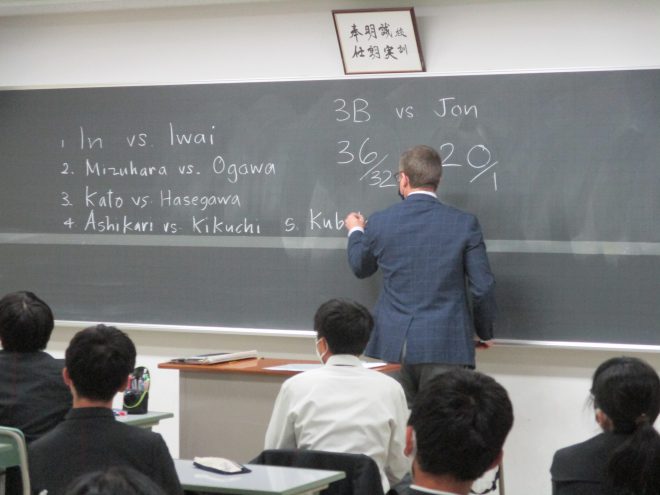 校訓
誠実
明朗
奉仕
3B vs Jon
36/32 20/1
1 In vs. Iwai
2. Mizuhara vs. Ogawa
3. Kato vs. Hasegawa
4 Ashikari vs. Kikuchi
5. Kub